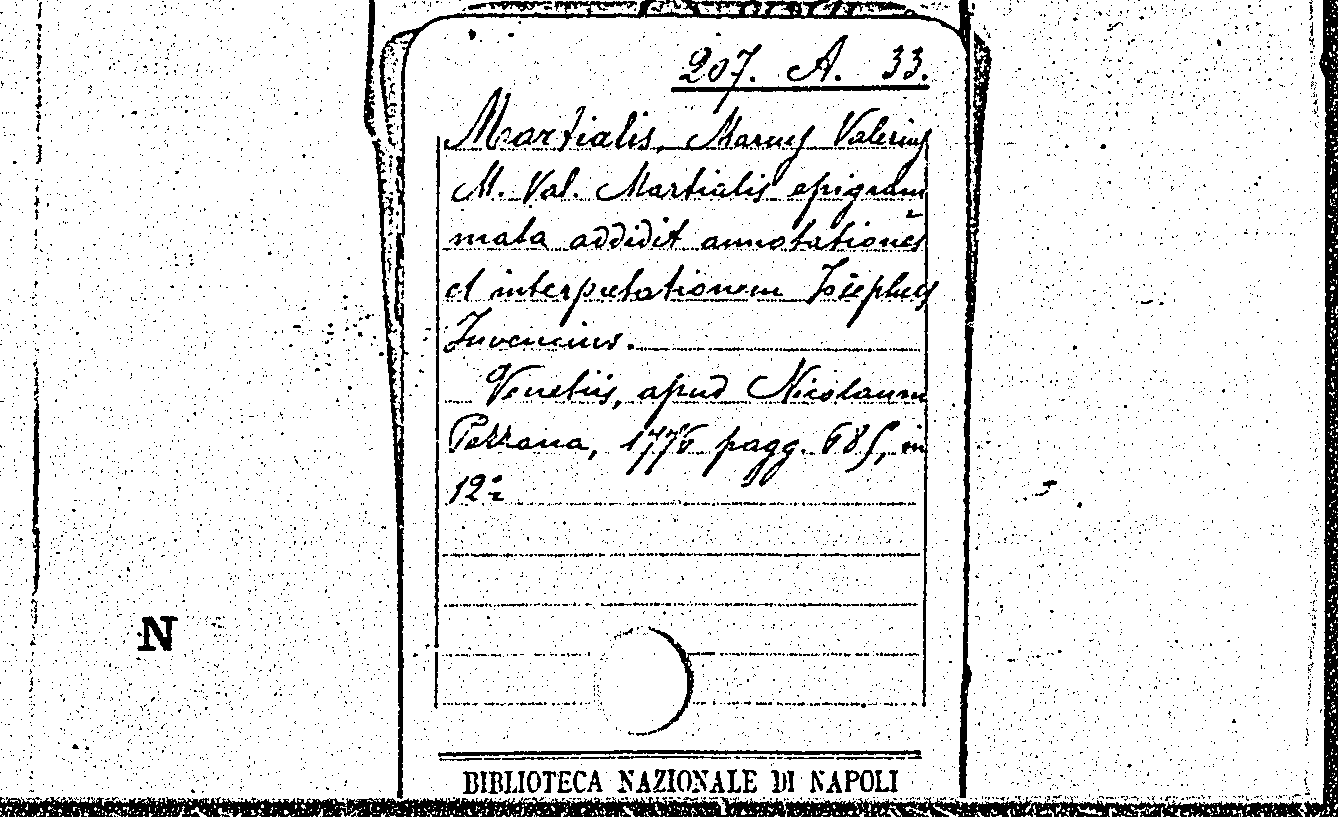 207. A. 33.
Martialis, Marcus Valerius
M. Val. Martialis epigram
mata addidit annotationes
et interpretationem Josephus
Juvencius.
Venetiis, apud Nicolaum
Pezzana, 1776 pagg. 685, in
12º
N
BIBLIOTECA NAZIONALE DI NAPOLI